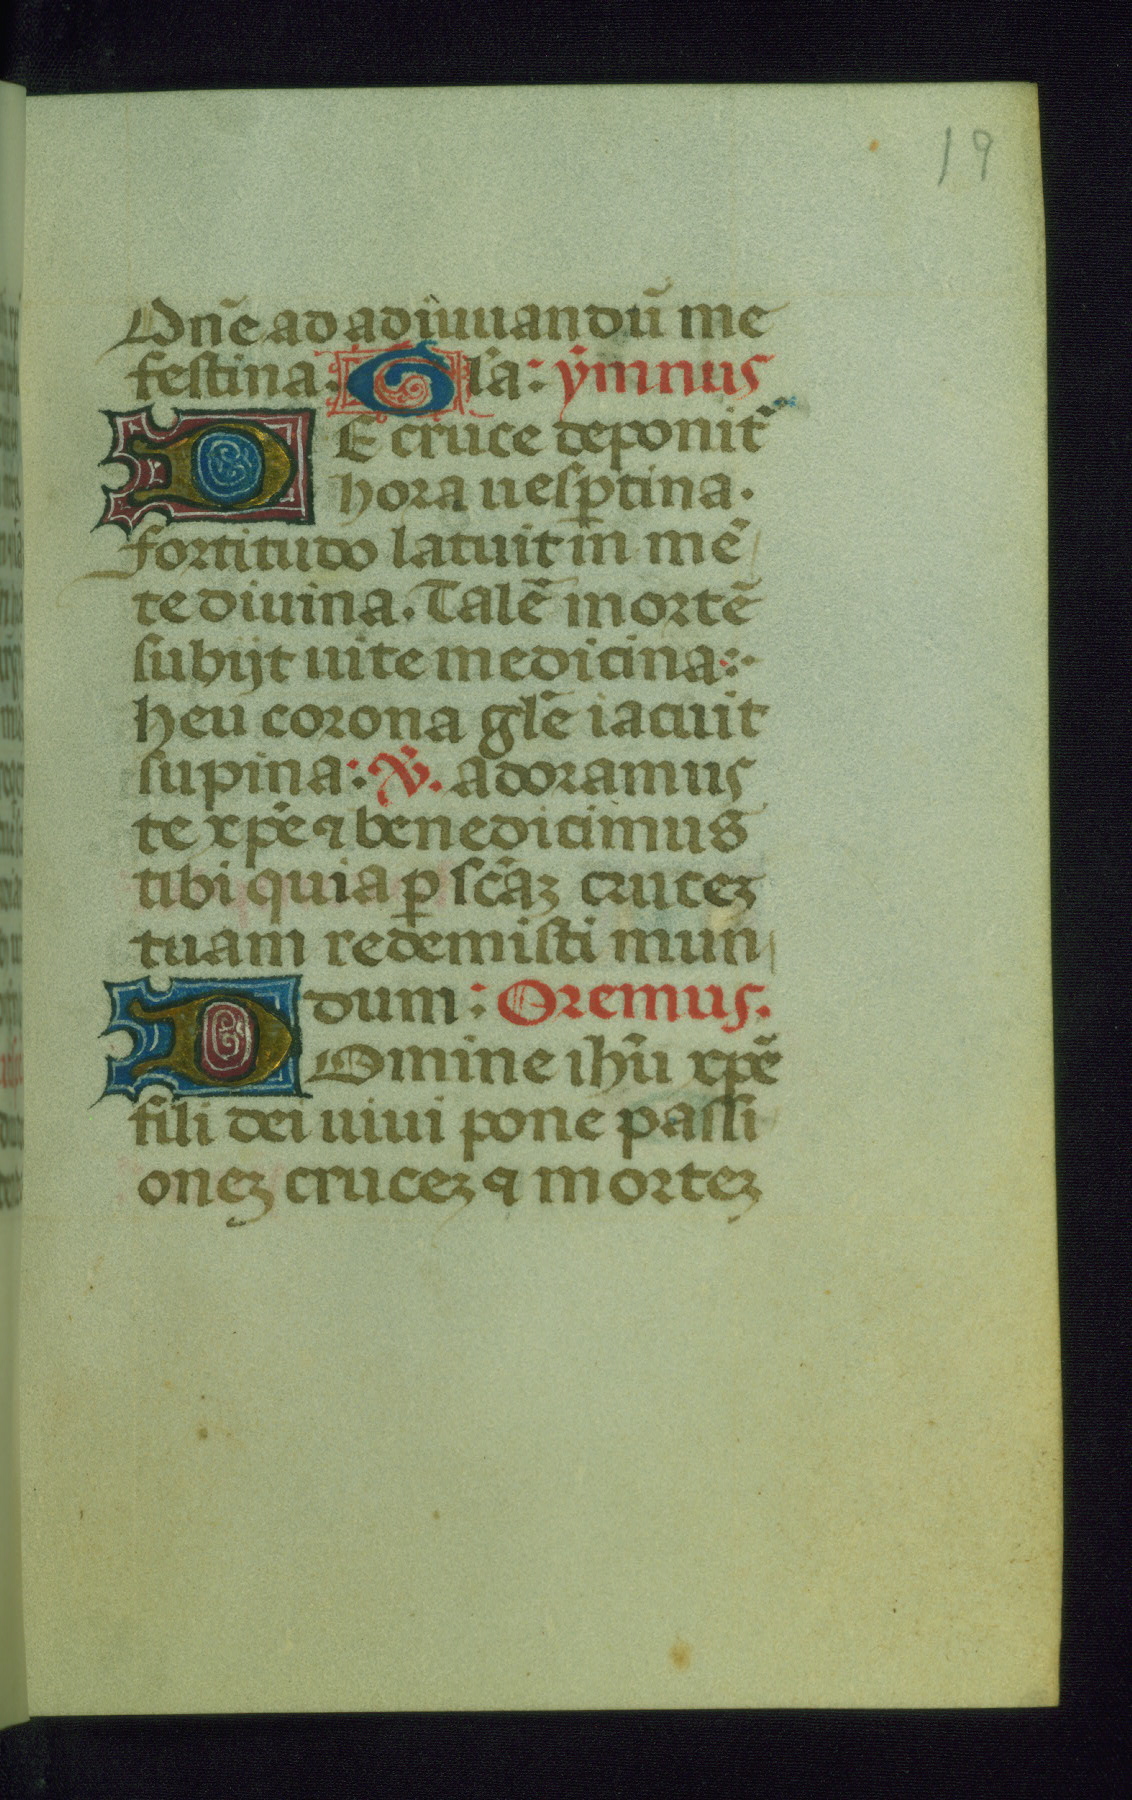 19
Dn̄e ad adiuuandū me
festina: Gła: ymnus
DE cruce deponit᷑
hora uesꝑtina.
fortitudo latuit in mē
te diuina. Talē mortē
subijt uite medicina:
heu corona glē iacuit
supina: ℣. adoramus
te xp̄e ⁊ benedicimus
tibi quia ꝑ sc̄aꝫ cruceꝫ
tuam redemisti mun
dum: Oremus.
DOmine ihū xp̄e
fili dei uiui pone passi
oneꝫ cruceꝫ ⁊ morteꝫ